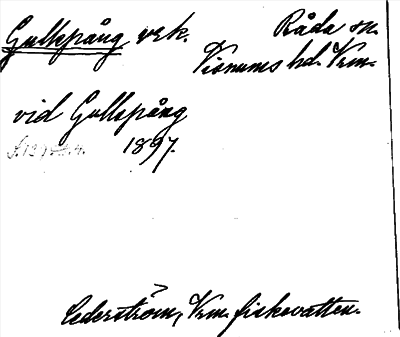 Gullspång vek. Råda sn.
Visnums hd. Vrm.
vid Gullspång
1897.
Cederström, Vrm. fiskevatten.